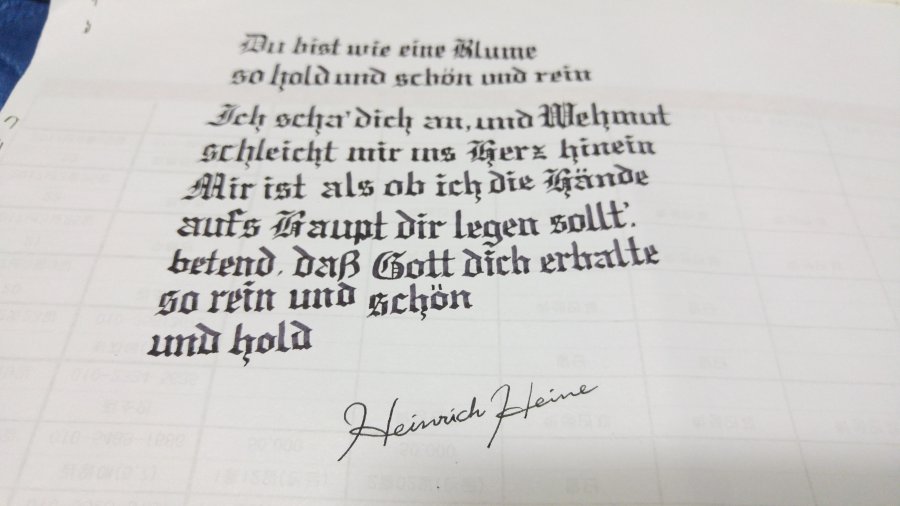 Du bist wie eine Blume
so hold und schön und rein
Ich scha' dich an, und Wehmut
schleicht mir ins Herz hinein
Mir ist als ob ich die Hände
aufs Haupt dir legen sollt'.
betend, daß Gott dich erhalte
so rein und schön
und hold
Heinrich Heine